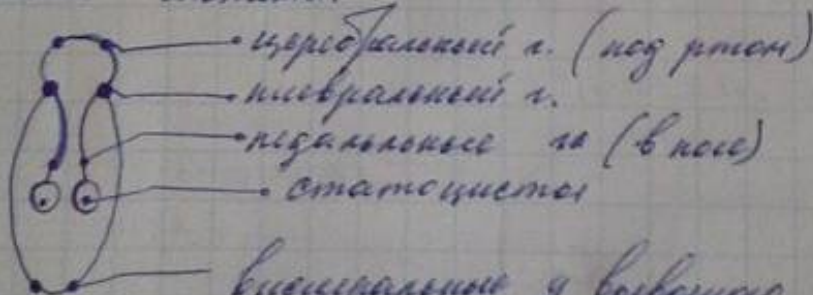 церебральный г. (под ртом)
плевральный г.
педальные ги (в ноге)
статоцисты
висцеральные у